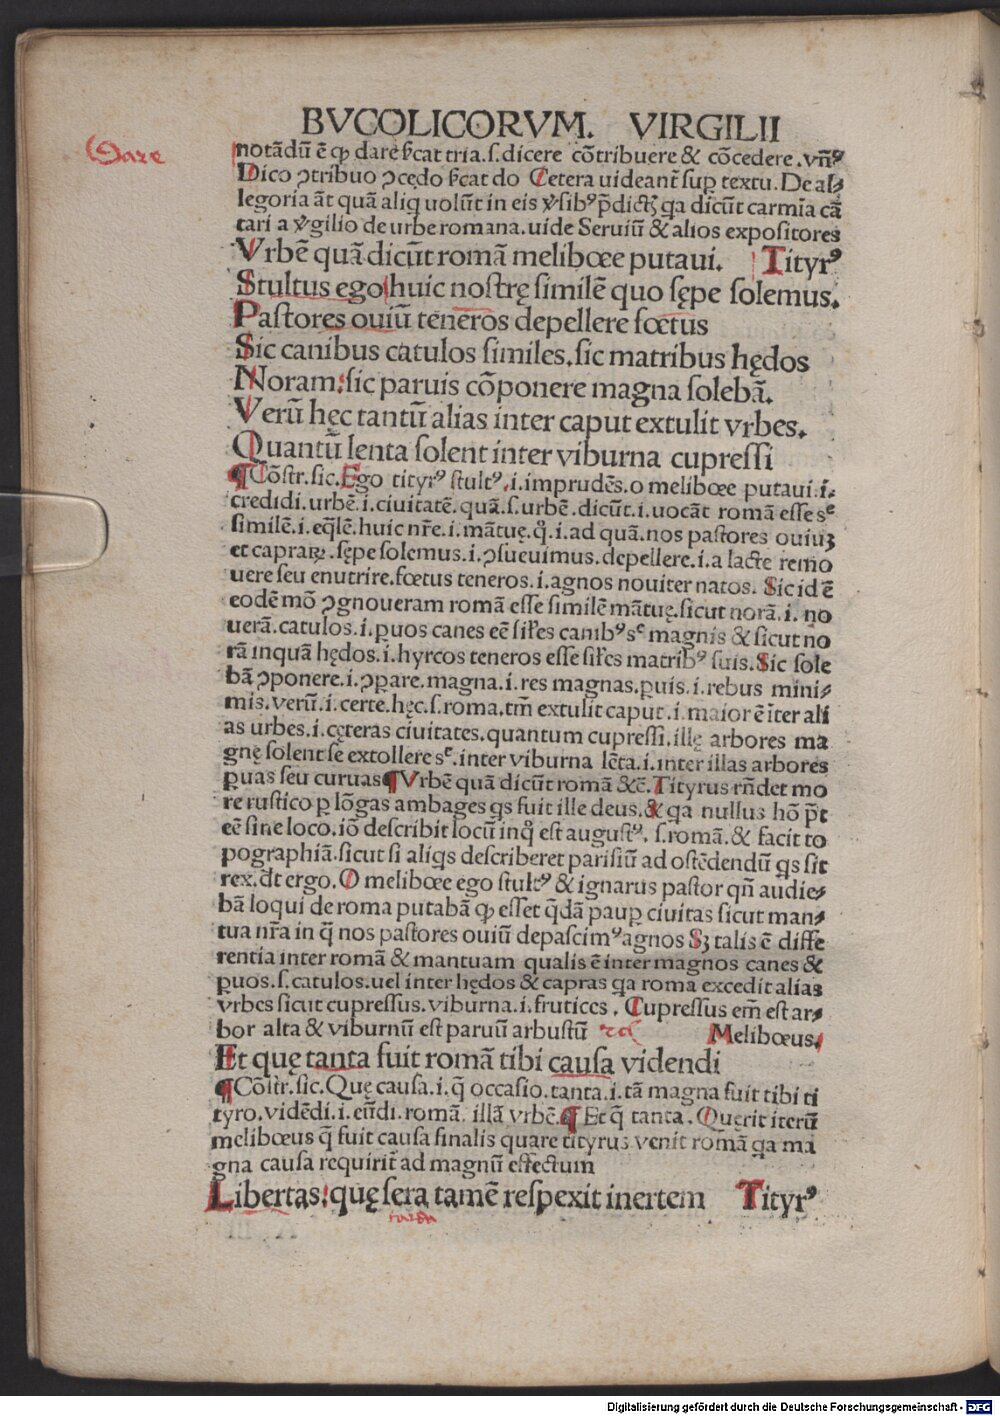 BVCOLICORVM. VIRGILII
Dare
notādū ē ꝙ dare sīcat tria.s.dicere cōtribuere & cōcedere.vnꝰ
Dico ɔtribuo ɔcędo sīcat do Cetera uideant̄ sup̱ textu. De al⸗
legoria āt quā aliq̇ uolūt in eis ꝟsibꝰ p̄dictꝫ qa dicūt carmīa cā
tari a ꝟgilio de urbe romana.uide Seruiū & alios expositores
Vrbē quā dicūt romā melibœe putaui. Tityrꝰ
Stultus ego huic nostrę similē quo sępe solemus.
Pastores ouiū teneros depellere fœtus
Sic canibus catulos similes.sic matribus hędos
Noram:sic paruis cōponere magna solebā.
Verū hęc tantū alias inter caput extulit vrbes.
Quantū lenta solent inter viburna cupressi
¶Cōstr.sic.Ego tityrꝰ stultꝰ.i.imprudēs.o melibœe putaui.i.
credidi.urbē.i.ciuitatē.quā.s.urbē.dicūt.i.uocāt romā esse sᵉ
similē.i.eq̄lē.huic nr̄e.i.mātuę.q̊.i.ad quā.nos pastores ouiuꝫ
et caprarꝝ.sępe solemus.i.ɔsueuimus.depellere.i.a lacte remo
uere seu enutrire.fœtus teneros.i.agnos nouiter natos. Sic id ē
eodē mō ɔgnoueram romā esse similē mātuę.sicut norā.i. no
uerā.catulos.i.p̱uos canes eē sil̄es canibꝰ sᵉ magnis & sicut no
rā inquā hędos.i.hyrcos teneros esse sil̄es matribꝰ suis.Sic sole
bā ɔponere.i.ɔpare.magna.i.res magnas.p̱uis.i.rebus mini⸗
mis.verū.i.certe.hęc.s.roma.tm̄ extulit caput.i.maior ē īter ali
as urbes.i.cęteras ciuitates.quantum cupressi.illę arbores ma
gnę solent se extollere sᵉ.inter viburna lēta.i.inter illas arbores
p̱uas seu curuas¶Vrbē quā dicūt romā &c̄.Tityrus rn̄det mo
re rustico p̱ lōgas ambages qs fuit ille deus.& qa nullus hō p̄t
eē sine loco.iō describit locū inq̊ est augustꝰ. s.romā.& facit to
pographiā.sicut si aliqs describeret parisiū ad ostēdendū qs sit
rex.d̄t ergo.O melibœe ego stultꝰ & ignarus pastor qn̄ audie⸗
bā loqui de roma putabā ꝙ esset q̄dā paup̱ ciuitas sicut man⸗
tua nr̄a in q̄ nos pastores ouiū depascimꝰ agnos Sꝫ talis ē diffe
rentia inter romā & mantuam qualis ē inter magnos canes &
p̱uos.s.catulos.uel inter hędos & capras qa roma excedit alias
vrbes sicut cupressus.viburna.i.frutices. Cupressus em̄ est ar⸗
bor alta & viburnū est paruū arbustū Melibœus.
Et quę tanta fuit romā tibi causa videndi
¶Cōstr.sic.Quę causa.i.q̄ occasio.tanta.i.tā magna fuit tibi ti
tyro.vidēdi.i.eūdi.romā. illā vrbē.¶ Et q̄ tanta. Quęrit iterū
melibœus q̄ fuit causa finalis quare tityrus venit romā qa ma
gna causa requirit̄ ad magnū effectum
Libertas:quę sera tamē respexit inertem Tityrꝰ
Digitalisierung gefördert durch die Deutsche Forschungsgemeinschaft - DFG